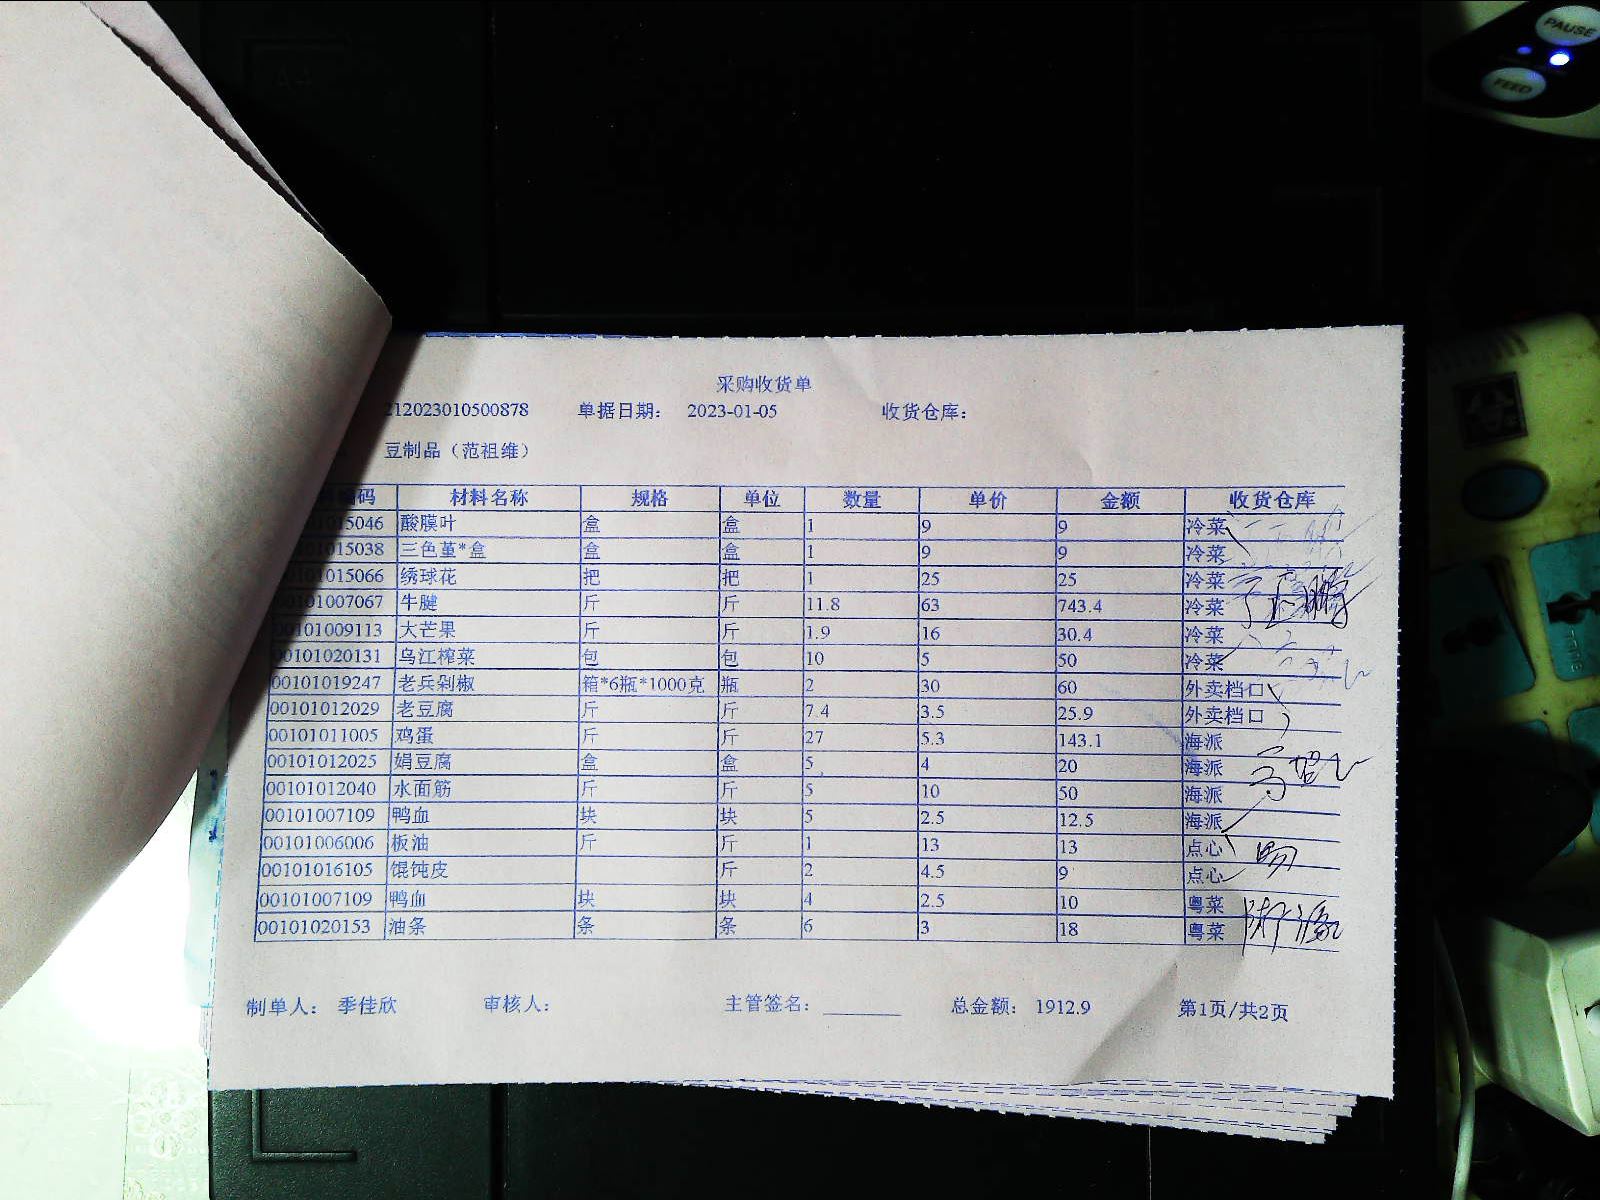 PAUSE
FEED
采购收货单
212023010500878 单据日期： 2023-01-05 收货仓库：
豆制品（范祖维）
编码 材料名称 规格 单位 数量 单价 金额 收货仓库
01015046 酸膜叶 盒 盒 1 9 9 冷菜
0101015038 三色堇*盒 盒 盒 1 9 9 冷菜
00101015066 绣球花 把 把 1 25 25 冷菜
00101007067 牛腱 斤 斤 11.8 63 743.4 冷菜
00101009113 大芒果 斤 斤 1.9 16 30.4 冷菜
00101020131 乌江榨菜 包 包 10 5 50 冷菜
00101019247 老兵剁椒 箱*6瓶*1000克 瓶 2 30 60 外卖档口
00101012029 老豆腐 斤 斤 7.4 3.5 25.9 外卖档口
00101011005 鸡蛋 斤 斤 27 5.3 143.1 海派
00101012025 娟豆腐 盒 盒 5 4 20 海派
00101012040 水面筋 斤 斤 5 10 50 海派
00101007109 鸭血 块 块 5 2.5 12.5 海派
00101006006 板油 斤 斤 1 13 13 点心
00101016105 馄饨皮 斤 2 4.5 9 点心
00101007109 鸭血 块 块 4 2.5 10 粤菜
00101020153 油条 条 条 6 3 18 粤菜
制单人： 季佳欣 审核人： 主管签名：________ 总金额： 1912.9 第1页/共2页